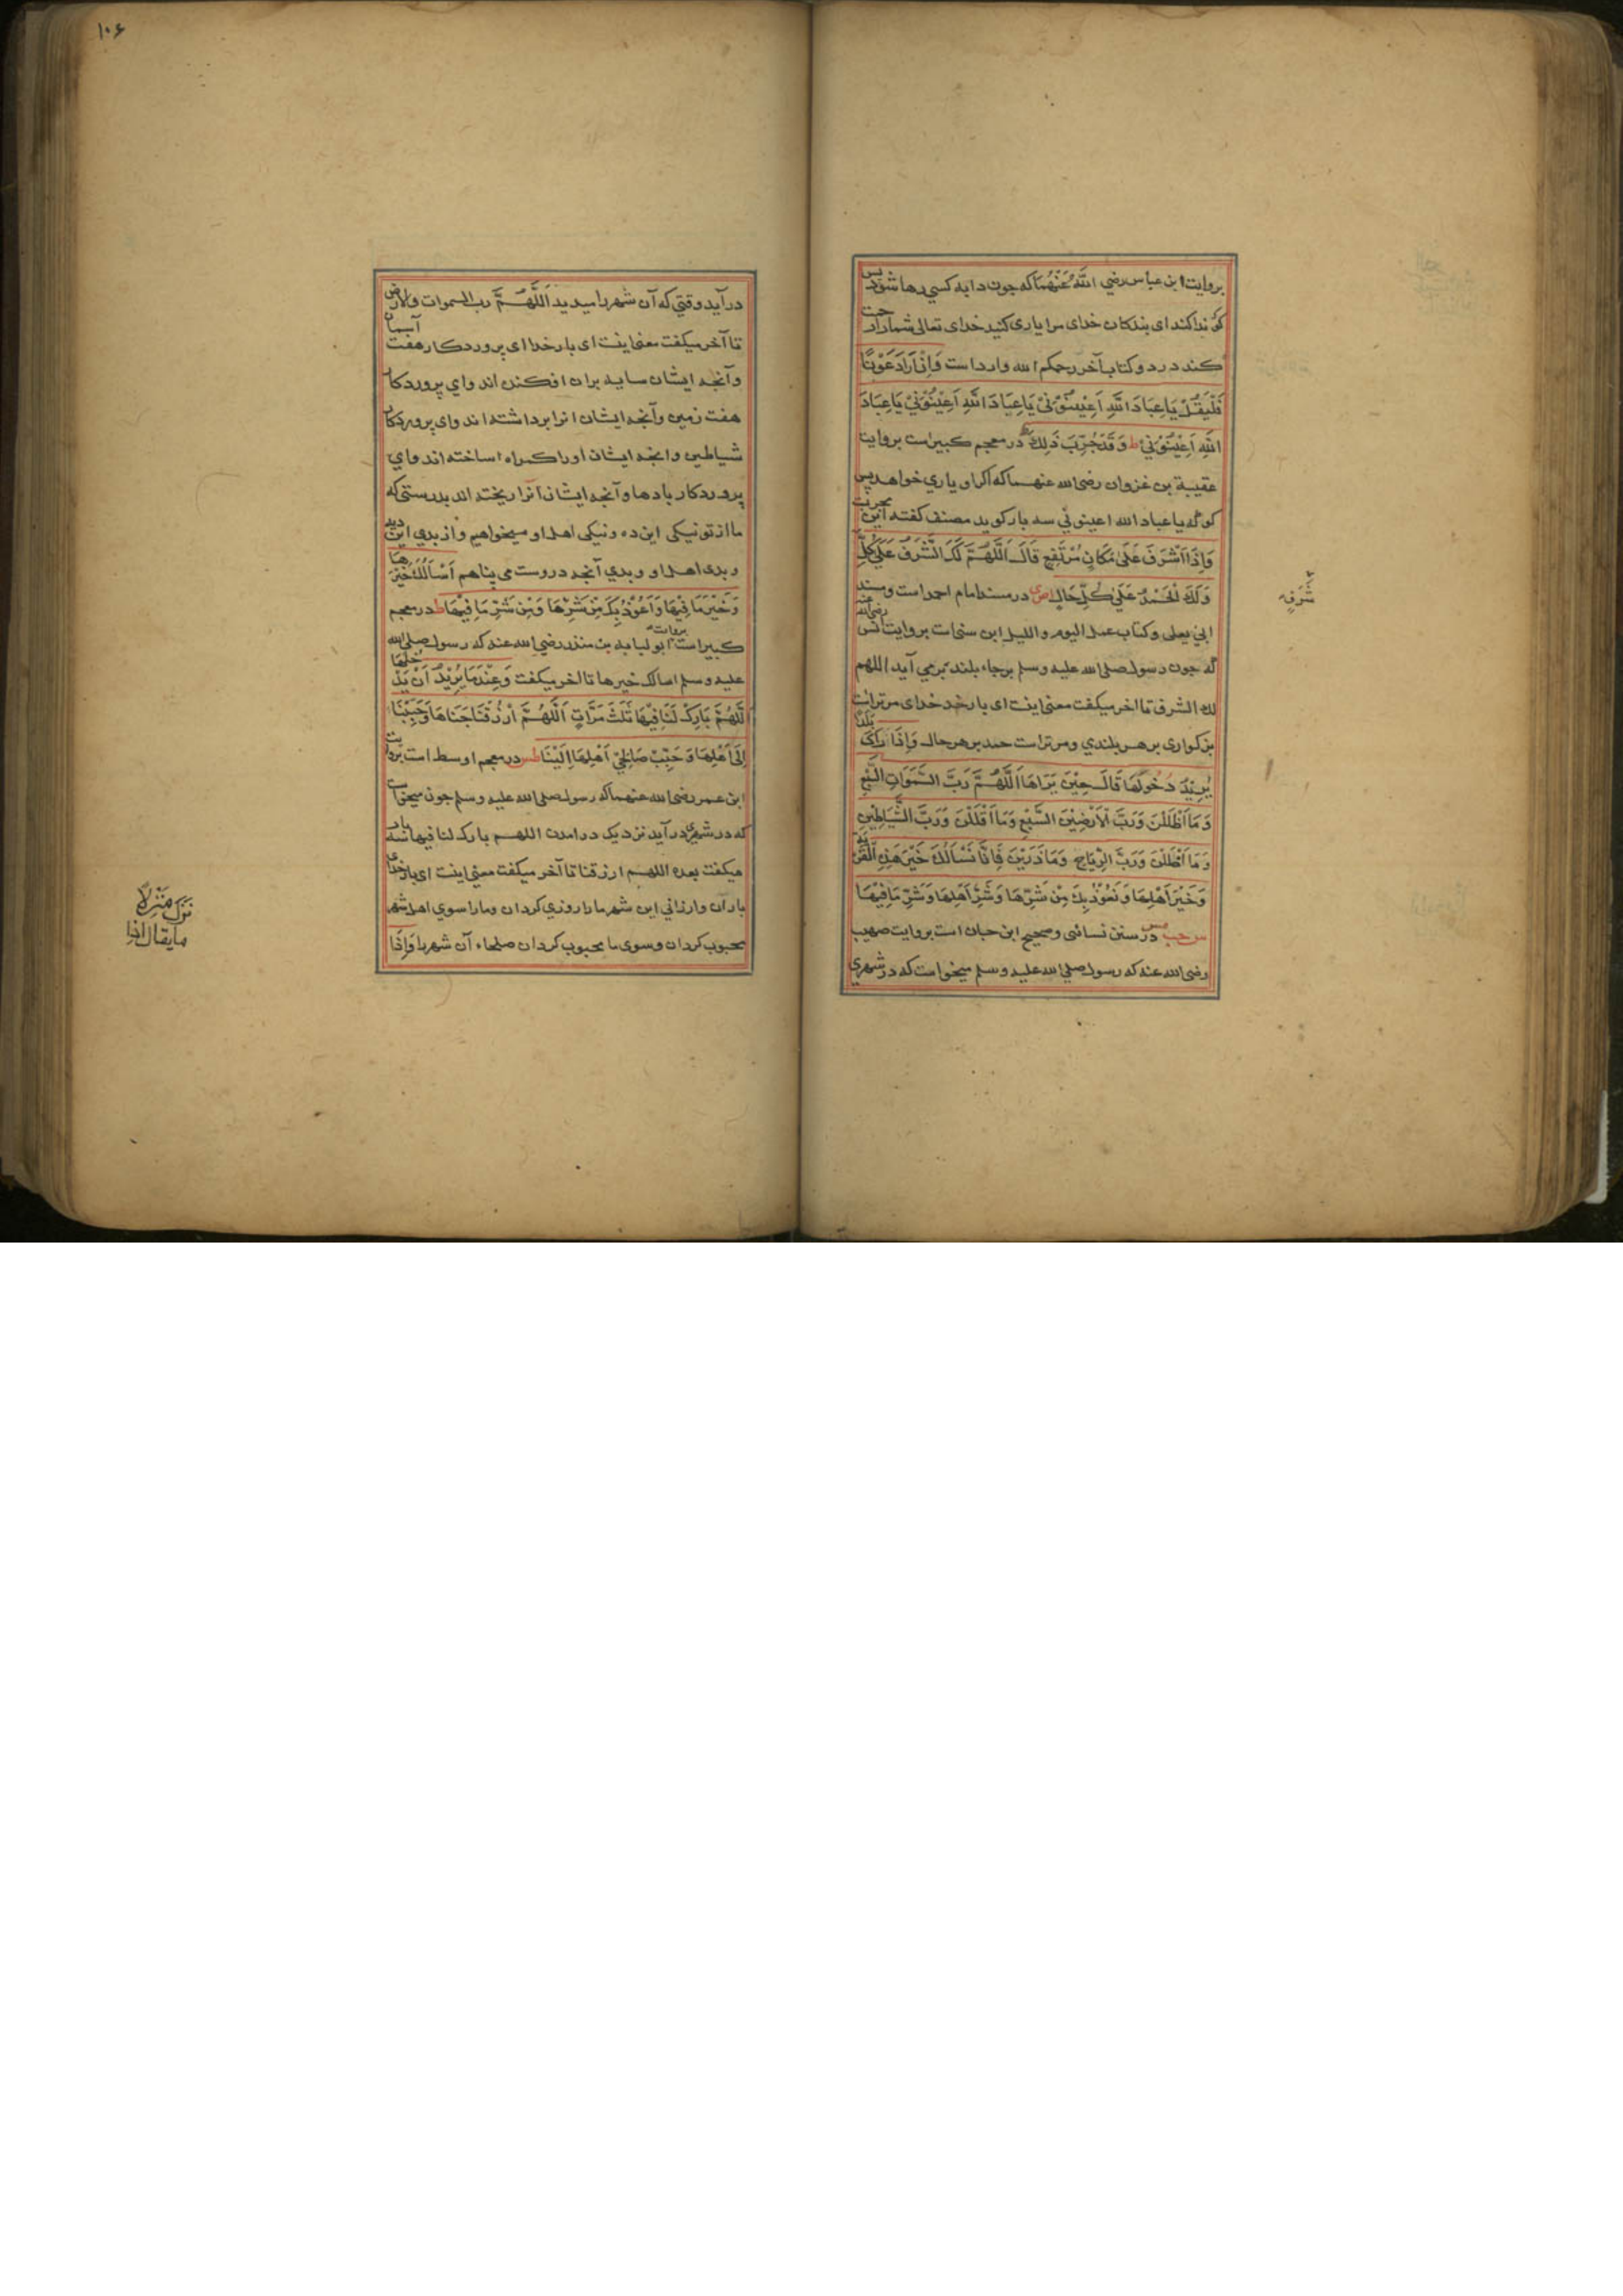 بروایت ابن عباس رضي الله عنهما که چون دابه کسي رها شود پس
کو ندا کند ای بندکان خدای مرا یاری کنید خدای تعالی شمارا رحمت
کند در دو کتاب آخر رحمکم الله وارد است وَاِنْ اَرَادَ عَوْنًا
فَلْيَقُلْ يَاعِبَادَ اللّٰهِ اَعِيْنُوْنِيْ يَاعِبَادَ اللّٰهِ اَعِيْنُوْنِيْ يَاعِبَادَ
اللّٰهِ اَعِيْنُوْنِيْ ط وَقَدْ جُرِّبَ ذٰلِكَ ط در معجم کبیر است بروایت
عقیبة بن غزوان رضی الله عنهما که اکر او یاري خواهد پس
کو که یاعباد الله اعینوني سه بار کوید مصنف کفته این مجربست
وَاِذَا اَشْرَفَ عَلٰى مَكَانٍ مُرْتَفِعٍ قَالَ اَللّٰهُمَّ لَكَ الشَّرَفُ عَلٰي كُلِّ
شَرَفٍ
وَلَكَ الْحَمْدُ عَلٰي كُلِّ حَالٍ ا ص ی در مسند امام احمد است و مسند
ابي یعلی و کتاب عمل الیوم واللیل ابن سني است بروایت انس رضی الله عنه
که چون رسول صلی الله علیه وسلم بر جاء بلند برمي آید اللهم
لك الشرف تا اخر میکفت معنی اینست ای بار خد خدای مر تراست
بزکواری بر هر بلندي ومر تراست حمد بر هر حال وَاِذَا رَاٰى بَلَدًا
يُرِيْدُ دُخُوْلَهَا قَالَ حِيْنَ يَرَاهَا اَللّٰهُمَّ رَبَّ السَّمَوَاتِ السَّبْعِ
وَمَا اَظْلَلْنَ وَرَبَّ الْاَرْضِيْنَ السَّبْعِ وَمَا اَقْلَلْنَ وَرَبَّ الشَّيَاطِيْنِ
وَمَا اَضْلَلْنَ وَرَبَّ الرِّيَاحِ وَمَا ذَرَيْنَ فَاِنَّا نَسْاَلُكَ خَيْرَ هٰذِهِ الْقَرْيَةِ
وَخَيْرَ اَهْلِهَا وَنَعُوْذُ بِكَ مِنْ شَرِّهَا وَشَرِّ اَهْلِهَا وَشَرِّ مَا فِيْهَا
س حب مس در سنن نسائی وصحیح ابن حبان است بروایت صهیب
رضی الله عنه که رسول صلی الله علیه وسلم میخواست که در شهري
۱۰۶
در آید وقتي که آن شهر را میدید اَللّٰهُمَّ رب السموات والارض
تا آخر میکفت معنی اینست ای بار خدا ای پروردکار هفت آسمان
وآنچه ایشان سایه بران افکنده اند واي پروردکار
هفت زمین وآنچه ایشان انرا برداشته اند وای پروردکار
شیاطین وانچه ایشان اورا کمراه ساخته اند واي
پروردکار بادها وآنچه ایشان انرا ریخته اند بدرستی که
ما از تو نیکی این ده ونیکی اهل او میخواهیم واز بدي این دیه
وبدی اهل او وبدي آنچه دروست می پناهیم اَسْاَلُكَ خَيْرَهَا
وَخَيْرَ مَا فِيْهَا وَاَعُوْذُ بِكَ مِنْ شَرِّهَا وَمِنْ شَرِّ مَا فِيْهَا ط در معجم
کبیر است بروایت ابو لبابه بن منذر رضي الله عنه که رسول صلی الله
علیه وسلم اسالك خیرها تا اخر میکفت وَعِنْدَمَا يُرِيْدُ اَنْ يَدْخُلَهَا
اَللّٰهُمَّ بَارِكْ لَنَا فِيْهَا ثَلٰثَ مَرَّاتٍ اَللّٰهُمَّ ارْزُقْنَا جَنَاهَا وَحَبِّبْنَا
اِلٰى اَهْلِهَا وَحَبِّبْ صَالِحِيْ اَهْلِهَا اِلَيْنَا طس در معجم اوسط است بروایت
ابن عمر رضی الله عنهما که رسول صلی الله علیه وسلم چون میخواست
که در شهري در آید نزدیک درامدن اللهم بارك لنا فیها سه بار
میکفت بعده اللهم ارزقنا تا آخر میکفت معنی اینست ای بار خدای
باران وارزاني این شهر مارا روزي کردان ومارا سوي اهل شهر
محبوب کردان وسوی ما محبوب کردان صلحاء آن شهر را وَاِذَا
نَزَلَ مَنْزِلًا
مایقال اذا